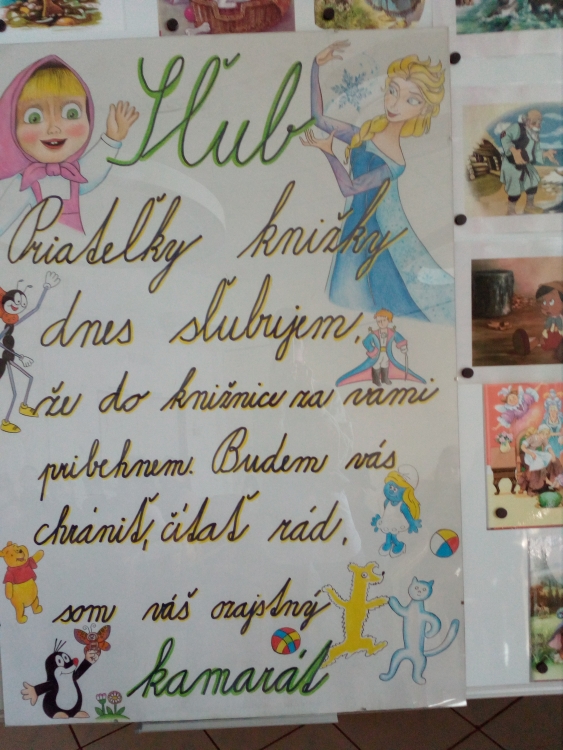 Sľub
Priateľky knižky
dnes sľubujem,
že do knižnice za vami
pribehnem. Budem vás
chrániť, čítať rád,
som váš ozajstný
kamarát